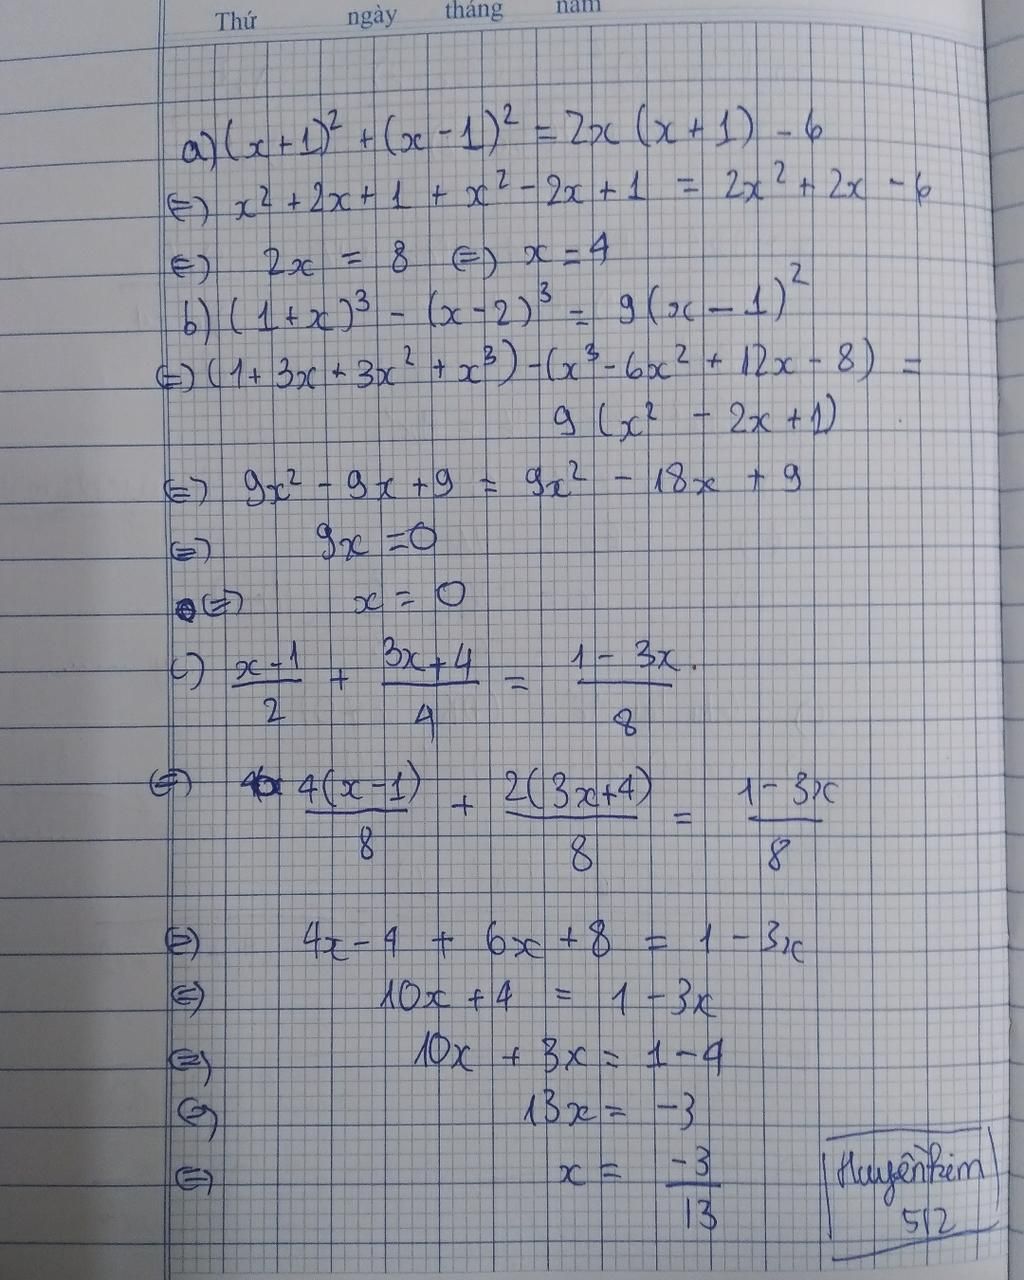 Thứ ngày tháng năm
a) (x+1)² + (x-1)² = 2x (x+1) - 6
(=) x² + 2x + 1 + x² - 2x + 1 = 2x² + 2x - 6
(=) 2x = 8 (=) x = 4
b) (1+x)³ - (x-2)³ = 9(x-1)²
(=) (1 + 3x + 3x² + x³) - (x³ - 6x² + 12x - 8) =
9 (x² - 2x + 1)
(=) 9x² - 9x + 9 = 9x² - 18x + 9
(=) 9x = 0
(=) x = 0
c) (x-1)/2 + (3x+4)/4 = (1-3x)/8.
(=) 4(x-1)/8 + 2(3x+4)/8 = (1-3x)/8
(=) 4x - 4 + 6x + 8 = 1 - 3x
(=) 10x + 4 = 1 - 3x
(=) 10x + 3x = 1 - 4
(=) 13x = -3
(=) x = -3/13
512